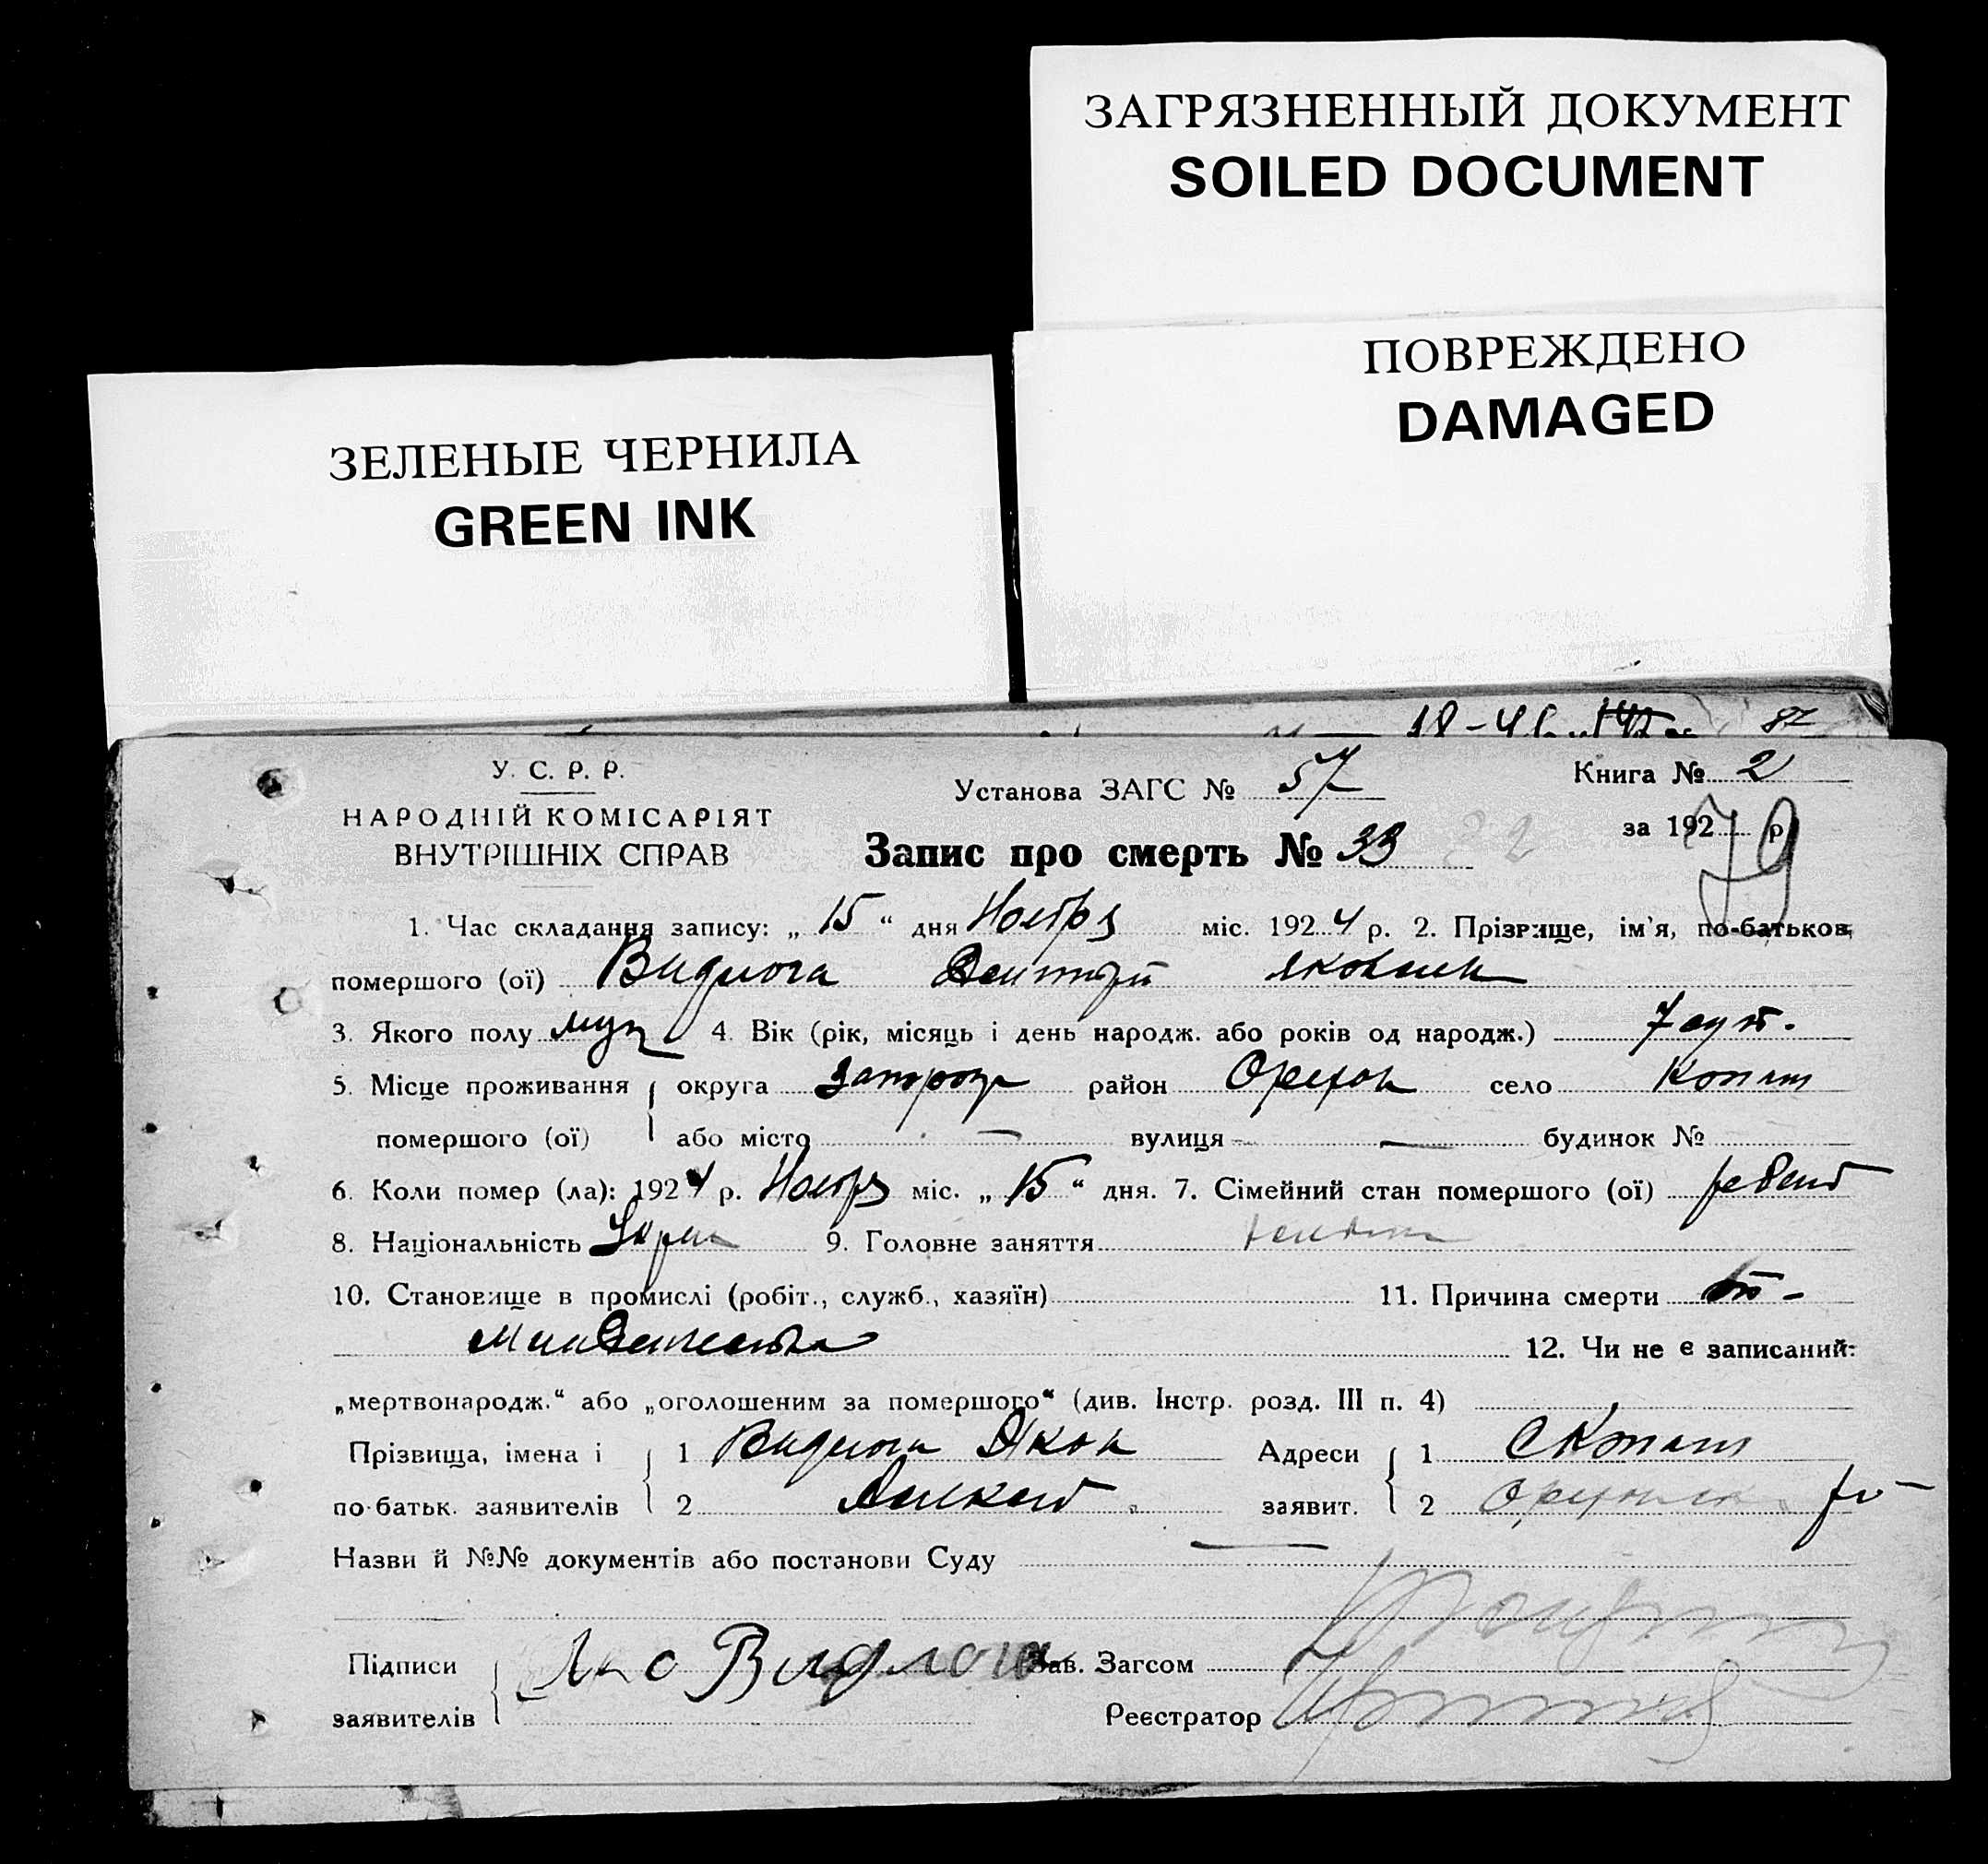 ЗАГРЯЗНЕННЫЙ ДОКУМЕНТ
SOILED DOCUMENT
ПОВРЕЖДЕНО
DAMAGED
ЗЕЛЕНЫЕ ЧЕРНИЛА
GREEN INK
87
У. С. Р. Р.
НАРОДНІЙ КОМІСАРІЯТ
ВНУТРІШНІХ СПРАВ
Установа ЗАГС № 57
Книга № 2
за 192 р.
79
Запис про смерть № 33
1. Час складання запису: „ 15 “ дня Ноября міс. 1924 р. 2. Прізвище, ім'я, по-батьков,
помершого (ої) Видлога Дмитрій Яковлев
3. Якого полу муж 4. Вік (рік, місяць і день народж. або років од народж.) 7 сут.
5. Місце проживання округа Запорож район Орехов село Копани
помершого (ої) або місто — вулиця — будинок №
6. Коли помер (ла): 1924 р. Ноября міс. „ 15 “ дня. 7. Сімейний стан помершого (ої) ребен
8. Національність Украи 9. Головне заняття
10. Становище в промислі (робіт., служб., хазяїн) 11. Причина смерти от -
младенчества 12. Чи не є записаний:
„мертвонародж.“ або „оголошеним за помершого“ (див. Інстр. розд. III п. 4)
Прізвища, імена і 1 Видлога Яков Адреси 1 с Копани
по-батьк. заявителів 2 заявит. 2 Ореховск. р
Назви й №№ документів або постанови Суду —
Підписи Видлога Зав. Загсом
заявителів Реєстратор